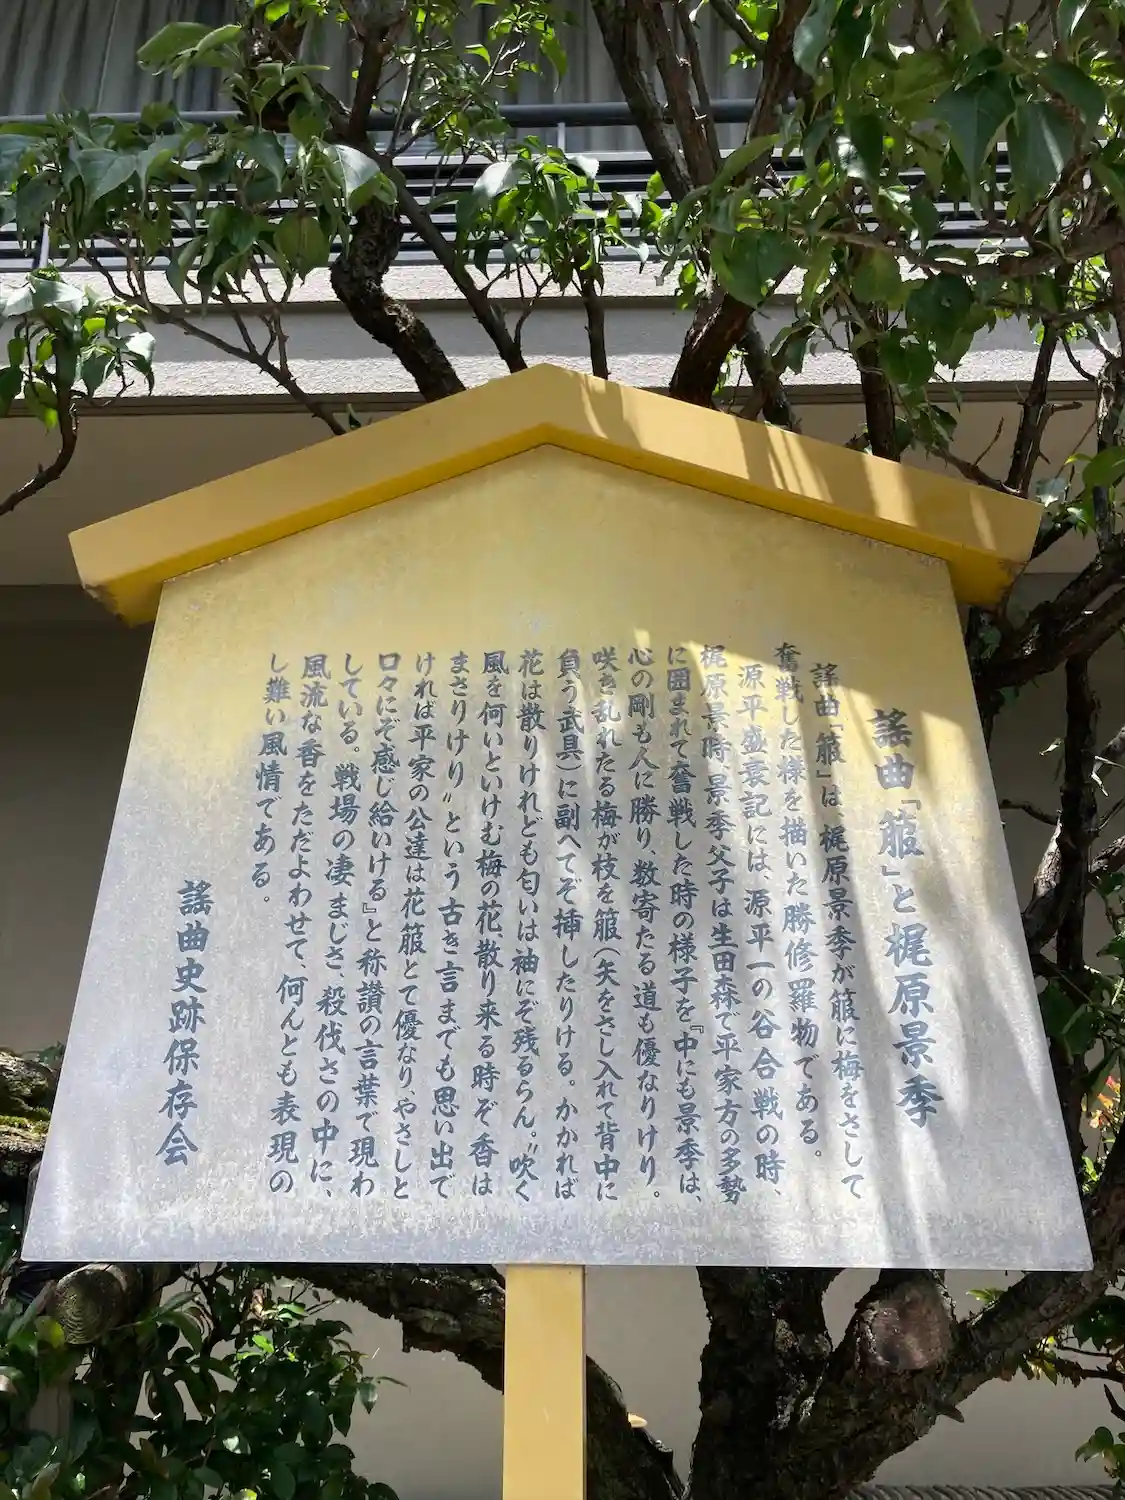 謡曲「箙」と梶原景季
謡曲「箙」は、梶原景季が箙に梅をさして
奮戦した様を描いた勝修羅物である。
源平盛衰記には、源平一の谷合戦の時、
梶原景時、景季父子は生田森で平家方の多勢
に囲まれて奮戦した時の様子を『中にも景季は、
心の剛も人に勝り、数寄たる道も優なりけり。
咲き乱れたる梅が枝を箙(矢をさし入れて背中に
負う武具)に副へてぞ挿したりける。かかれば
花は散りけれども匂いは袖にぞ残るらん。〃吹く
風を何いといけむ梅の花散り来る時ぞ香は
まさりけり〃という古き言までも思い出で
ければ平家の公達は花箙とて優なり、やさしと
口々にぞ感じ給いける』と称讃の言葉で現わ
している。戦場の凄まじさ、殺伐さの中に、
風流な香をただよわせて、何んとも表現の
し難い風情である。
謡曲史跡保存会